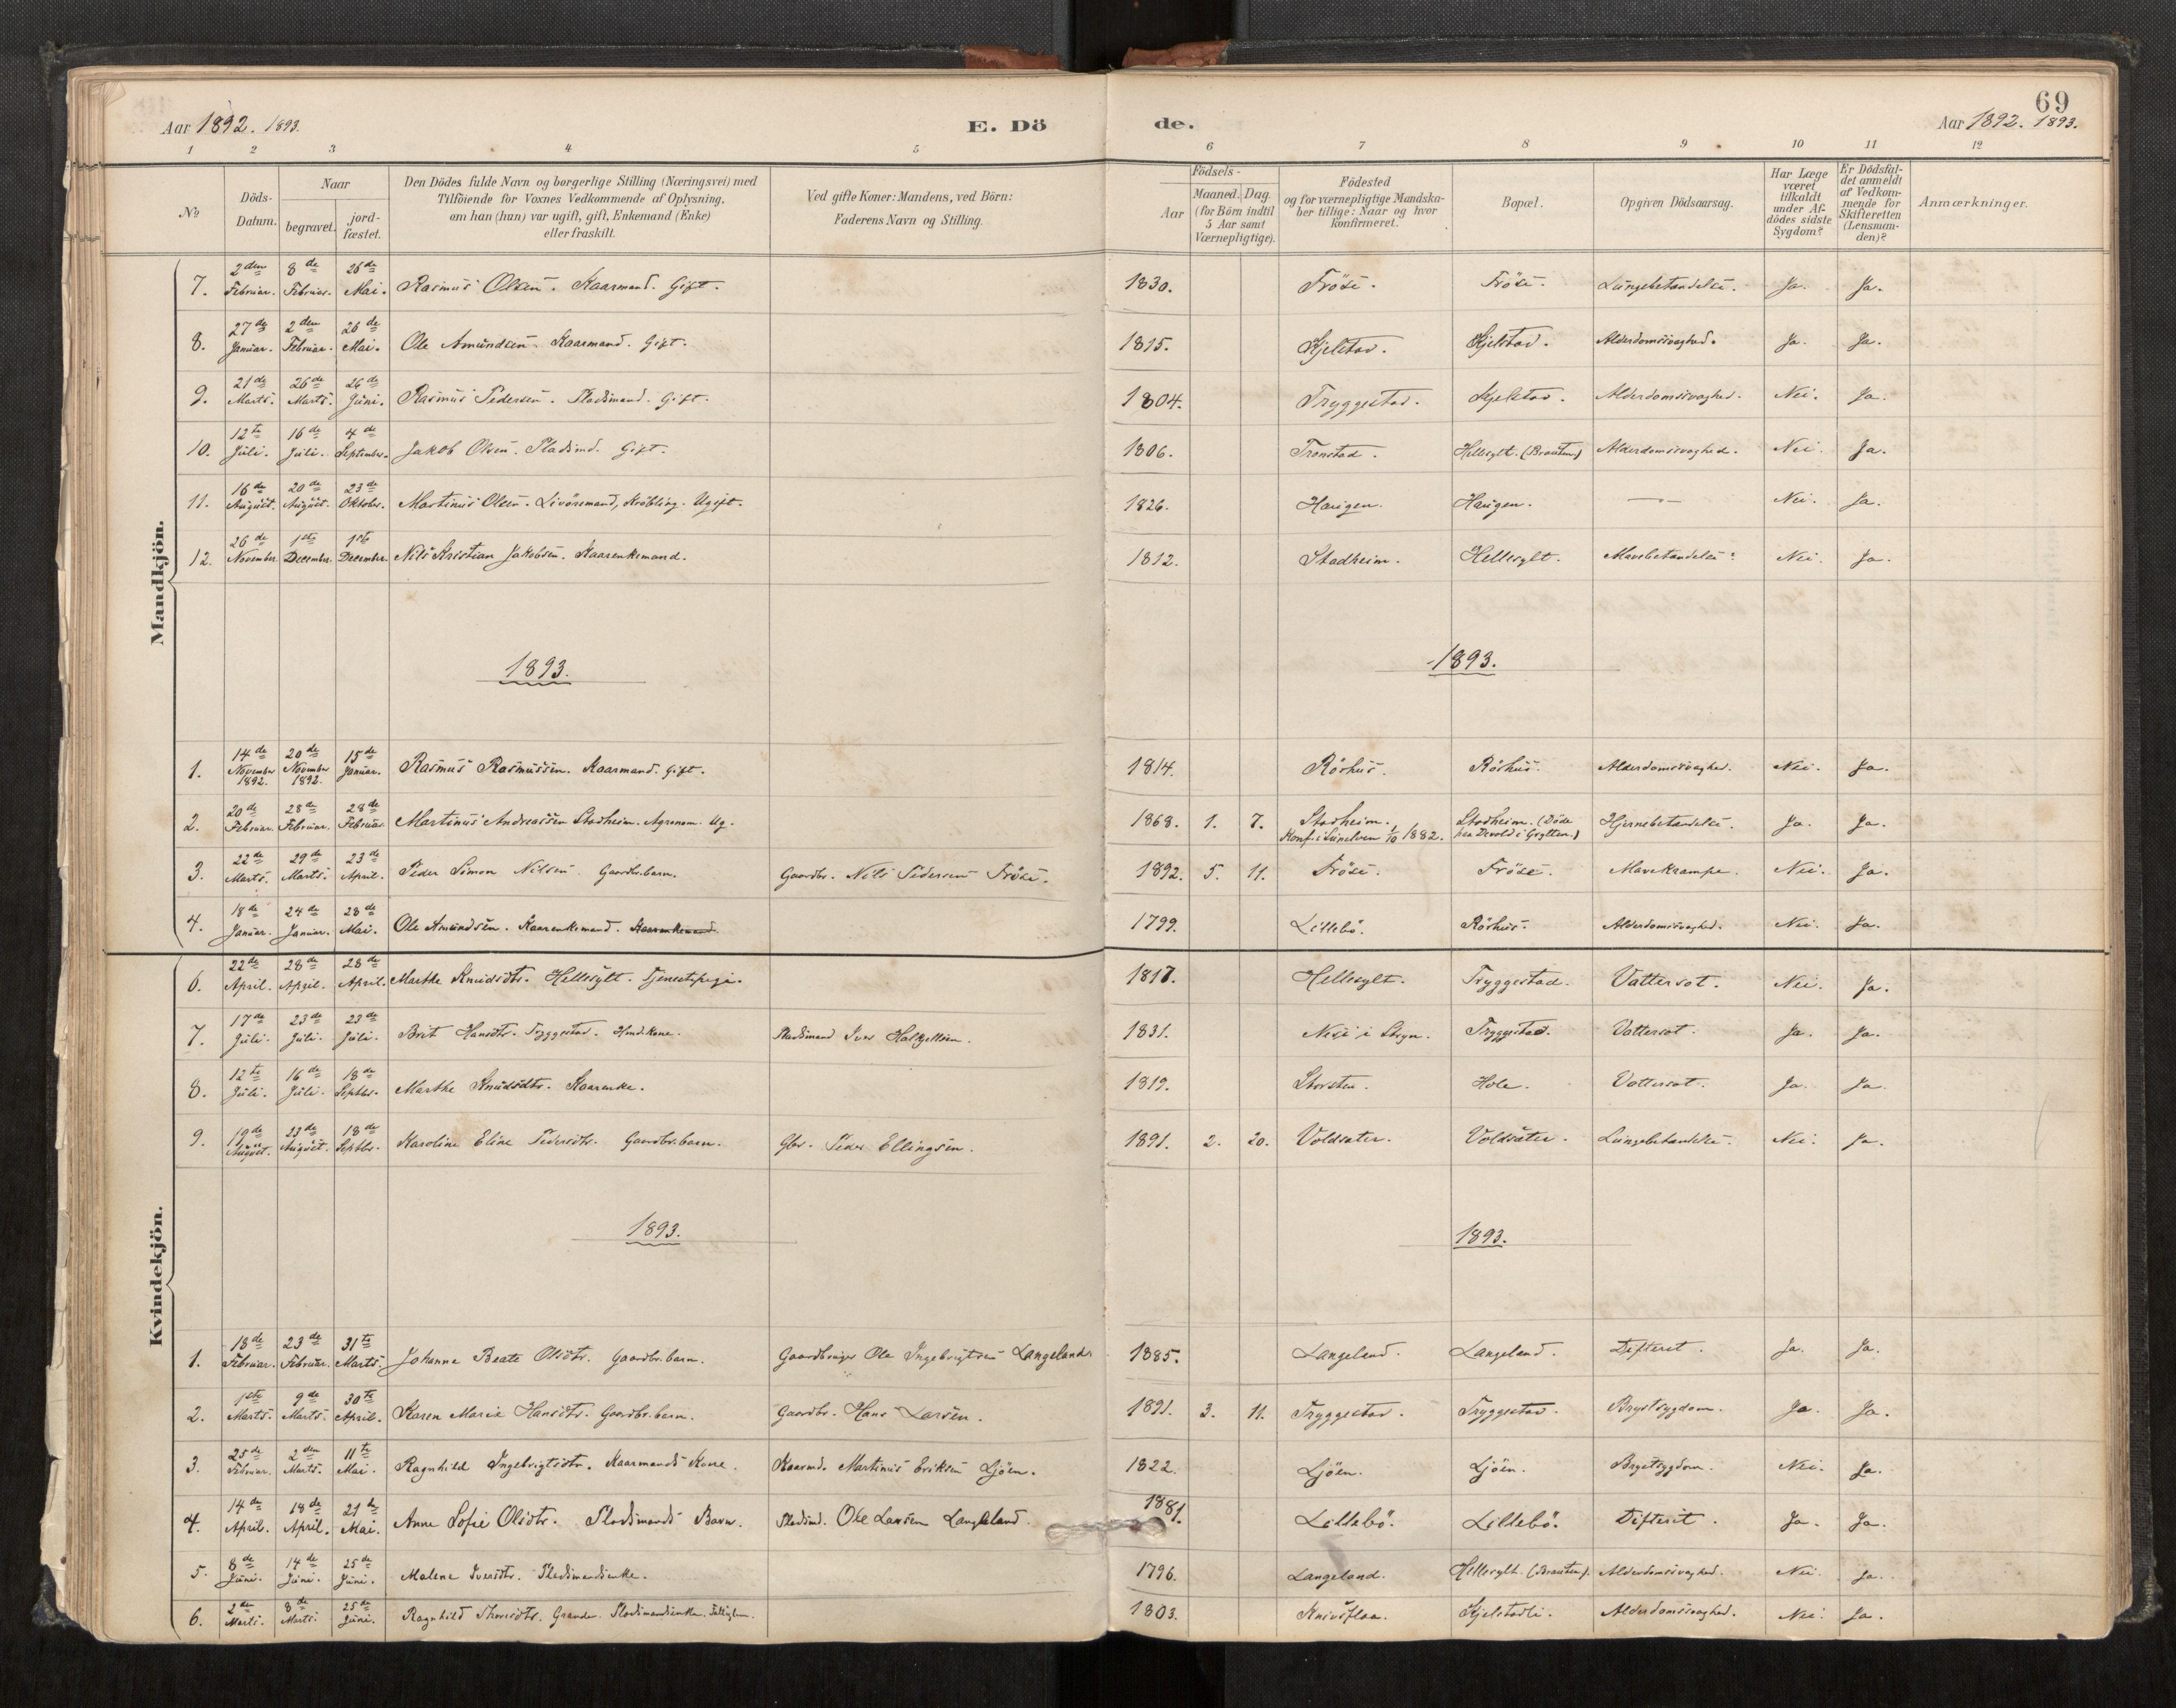 69
Aar 1892. 1893. E. Dö de. Aar 1892. 1893.
1 2 3 4 5 6 7 8 9 10 11 12
№
Döds-Datum.
Naar
begravet.
jord-fæstet.
Den Dödes fulde Navn og borgerlige Stilling (Næringsvei) med
Tilföiende for Voxnes Vedkommende af Oplysning,
om han (hun) var ugift, gift, Enkemand (Enke)
eller fraskilt.
Ved gifte Koner: Mandens, ved Börn:
Faderens Navn og Stilling.
Födsels-
Aar
Maaned. Dag.
(for Börn indtil
5 Aar samt
Værnepligtige).
Födested
og for værnepligtige Mandska-
ber tillige: Naar og hvor
konfirmeret.
Bopæl.
Opgiven Dödsaarsag.
Har Læge
været
tilkaldt
under Af-
dödes sidste
Sygdom?
Er Dödsfal-
det anmeldt
af Vedkom-
mende for
Skifteretten
(Lensman-
den)?
Anmærkninger.
Mandkjön.
7. 2den Februar. 8de Februar. 26de Mai. Rasmus Olsen. Kaarmand. Gift. 1830. Fröse. Fröse. Lungebetændelse. Ja. Ja.
8. 27de Januar. 2den Februar. 26de Mai. Ole Amundsen. Kaarmand. Gift. 1815. Kjelstad. Kjelstad. Alderdomssvaghed. Ja. Ja.
9. 21de Marts. 26de Marts. 26de Juni. Rasmus Pedersen. Pladsmand. Gift. 1804. Tryggestad. Kjelstad. Alderdomssvaghed. Nei. Ja.
10. 12te Juli. 16de Juli. 4de September. Jakob Olsen. Pladsmd. Gift. 1806. Tronstad. Hellesylt. (Brauten) Alderdomssvaghed. Nei. Ja.
11. 16de August. 20de August. 23de Oktober. Martinus Olsen. Livöremand, Kröbling. Ugift. 1826. Haugen. Haugen. — Nei. Ja.
12. 26de November. 1ste December. 1ste December. Nils Kristian Jakobsen. Kaarenkemand. 1812. Stadheim. Hellesylt. Mavebetændelse. Nei. Ja.
1893. 1893.
1. 14de November 1892. 20de November 1892. 15de Januar. Rasmus Rasmussen. Kaarmand. Gift. 1814. Rörhus. Rörhus. Alderdomssvaghed. Nei. Ja.
2. 20de Februar. 28de Februar. 28de Februar. Martinus Andreassen Stadheim. Agronom. Ug. 1868. 1. 7. Stadheim. Konf. i Sunelven 1/10 1882. Stadheim. (Döde paa Devold i Grytten.) Hjernebetændelse. Ja. Ja.
3. 22de Marts. 29de Marts. 23de April. Peder Simon Nilsen. Gaardbr.barn. Gaardbr. Nils Pedersen Fröse. 1892. 5. 11. Fröse. Fröse. Mavekrampe. Nei. Ja.
4. 18de Januar. 24de Januar. 28de Mai. Ole Amundsen. Kaarenkemand. Kaarenkemand. 1799. Lillebö. Rörhus. Alderdomssvaghed. Nei. Ja.
Kvindekjön.
6. 22de April. 28de April. 28de April. Marthe Knudsdtr. Hellesylt. Tjenestepige. 1817. Hellesylt. Tryggestad. Vattersot. Nei. Ja.
7. 17de Juli. 23de Juli. 23de Juli. Brit Hansdtr. Tryggestad. Kone. Pladsmand Iver 1831. i Stryn. Tryggestad. Vattersot. Ja. Ja.
8. 12te Juli. 16de Juli. 18de Septbr. Marthe Knudsdtr. Kaarenke. 1819. Hole. Vattersot. Ja. Ja.
9. 19de August. 23de August. 18de Septbr. Karoline Eline Pedersdtr. Gaardbr.barn. Gbr. Peder Ellingsen. 1891. 2. 20. Voldsæter. Voldsæter. Lungebetændelse. Nei. Ja.
1893. 1893.
1. 18de Februar. 23de Februar. 31te Marts. Johanne Beate Olsdtr. Gaardbr.barn. Gaardbruger Ole Ingebrigtsen Langeland 1885. Langeland. Langeland. Difterit. Ja. Ja.
2. 1ste Marts. 9de Marts. 30te April. Karen Marie Hansdtr. Gaardbr.barn. Gaardbr. Hans Larsen. 1891. 3. 11. Tryggestad. Tryggestad. Brystsygdom. Ja. Ja.
3. 25de Februar. 2den Marts. 11te Mai. Ragnhild Ingebrigtsdtr. Kaarmands Kone. Kaarmd. Martinus Eriksen Ljöen. 1822. Ljöen. Ljöen. Brystsygdom. Nei. Ja.
4. 14de April. 18de April. 21de Mai. Anne Sofie Olsdtr. Pladsmands Barn. Pladsmd. Ole Larsen Langeland. 1881. Lillebö. Lillebö. Difterit. Ja. Ja.
5. 8de Juni. 14de Juni. 25de Juni. Malene Iversdtr. Pladsmandsenke. 1796. Langeland. Hellesylt. (Brauten). Alderdomssvaghed. Nei. Ja.
6. 2den Marts. 8de Marts. 25de Juni. Ragnhild Grande. Pladsmandsenke. Fattiglem. 1803. Knivsflaa. Kjelstadli. Alderdomssvaghed. Nei. Ja.